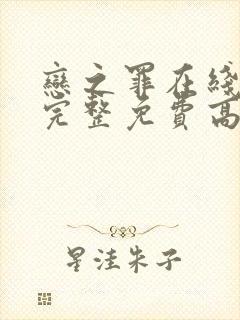 戀之罪在綫
完整免費高
星洼朱子